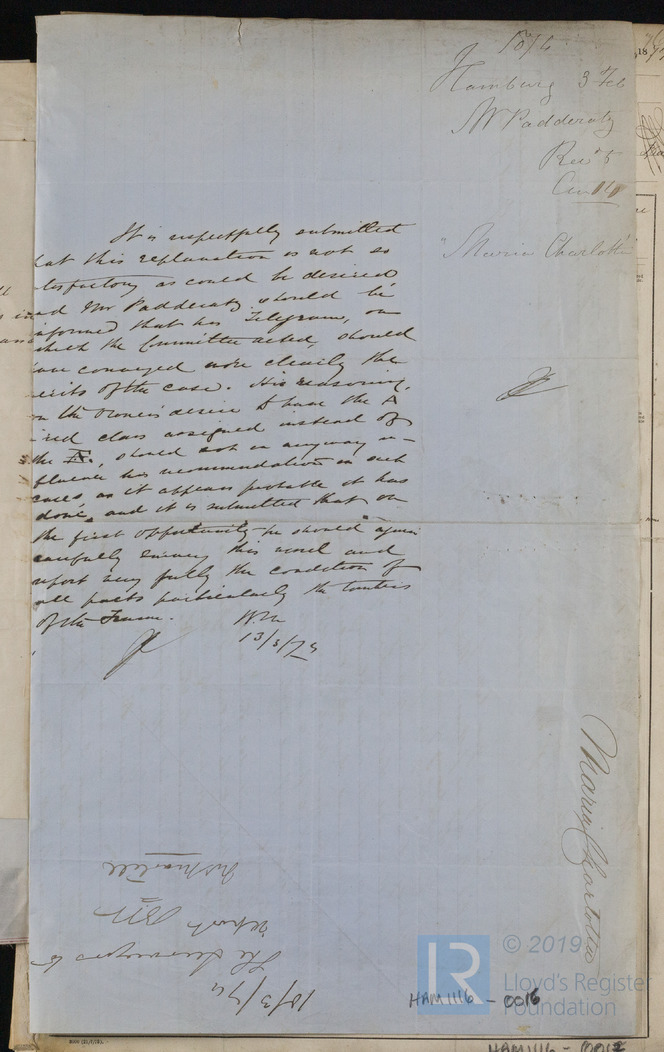 1874
Hamburg 3 Feb
Mr Padderatz
Rec'd 5
"Maria Charlotte"
It is respectfully submitted
that this explanation is not so
tisfactory as could be desired
and Mr Padderatz should be
informed that his Telegram, on
which the Committee acted, should
have conveyed more clearly the
merits of the case. His reasoning,
on the Owner's desire to have the A
red class assigned instead of
the Æ, should not in anyway in-
fluence his recommendation in such
cases, as it appears probable it has
done, and it is submitted that on
the first opportunity he should again
carefully survey this vessel and
report very fully the condition of
all parts particularly the timbers
of the Frame.
13/3/74
Maria Charlotte
18/3/74
The Surveyors to
© 2019
Lloyd's Register
Foundation
LR
HAM1116 - 0016
HAM1116 - 0012